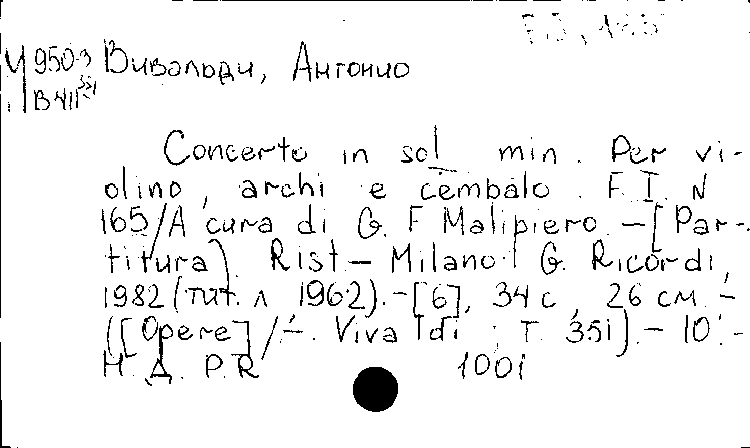 У 950-3 Вивальди, Антонио
В-411 351
Concerto in sol min. Per vi-
olino, archi e cembalo. F. I. N
165/A cura di G. F Malipiero. - [Par-
titura]. Rist. - Milano: G. Ricordi,
1982 (тит. л 1962). - [6], 34 с, 26 см. -
([Opere] / A. Vivaldi; T. 351). - 10.-
Н. Д. P. R 1001